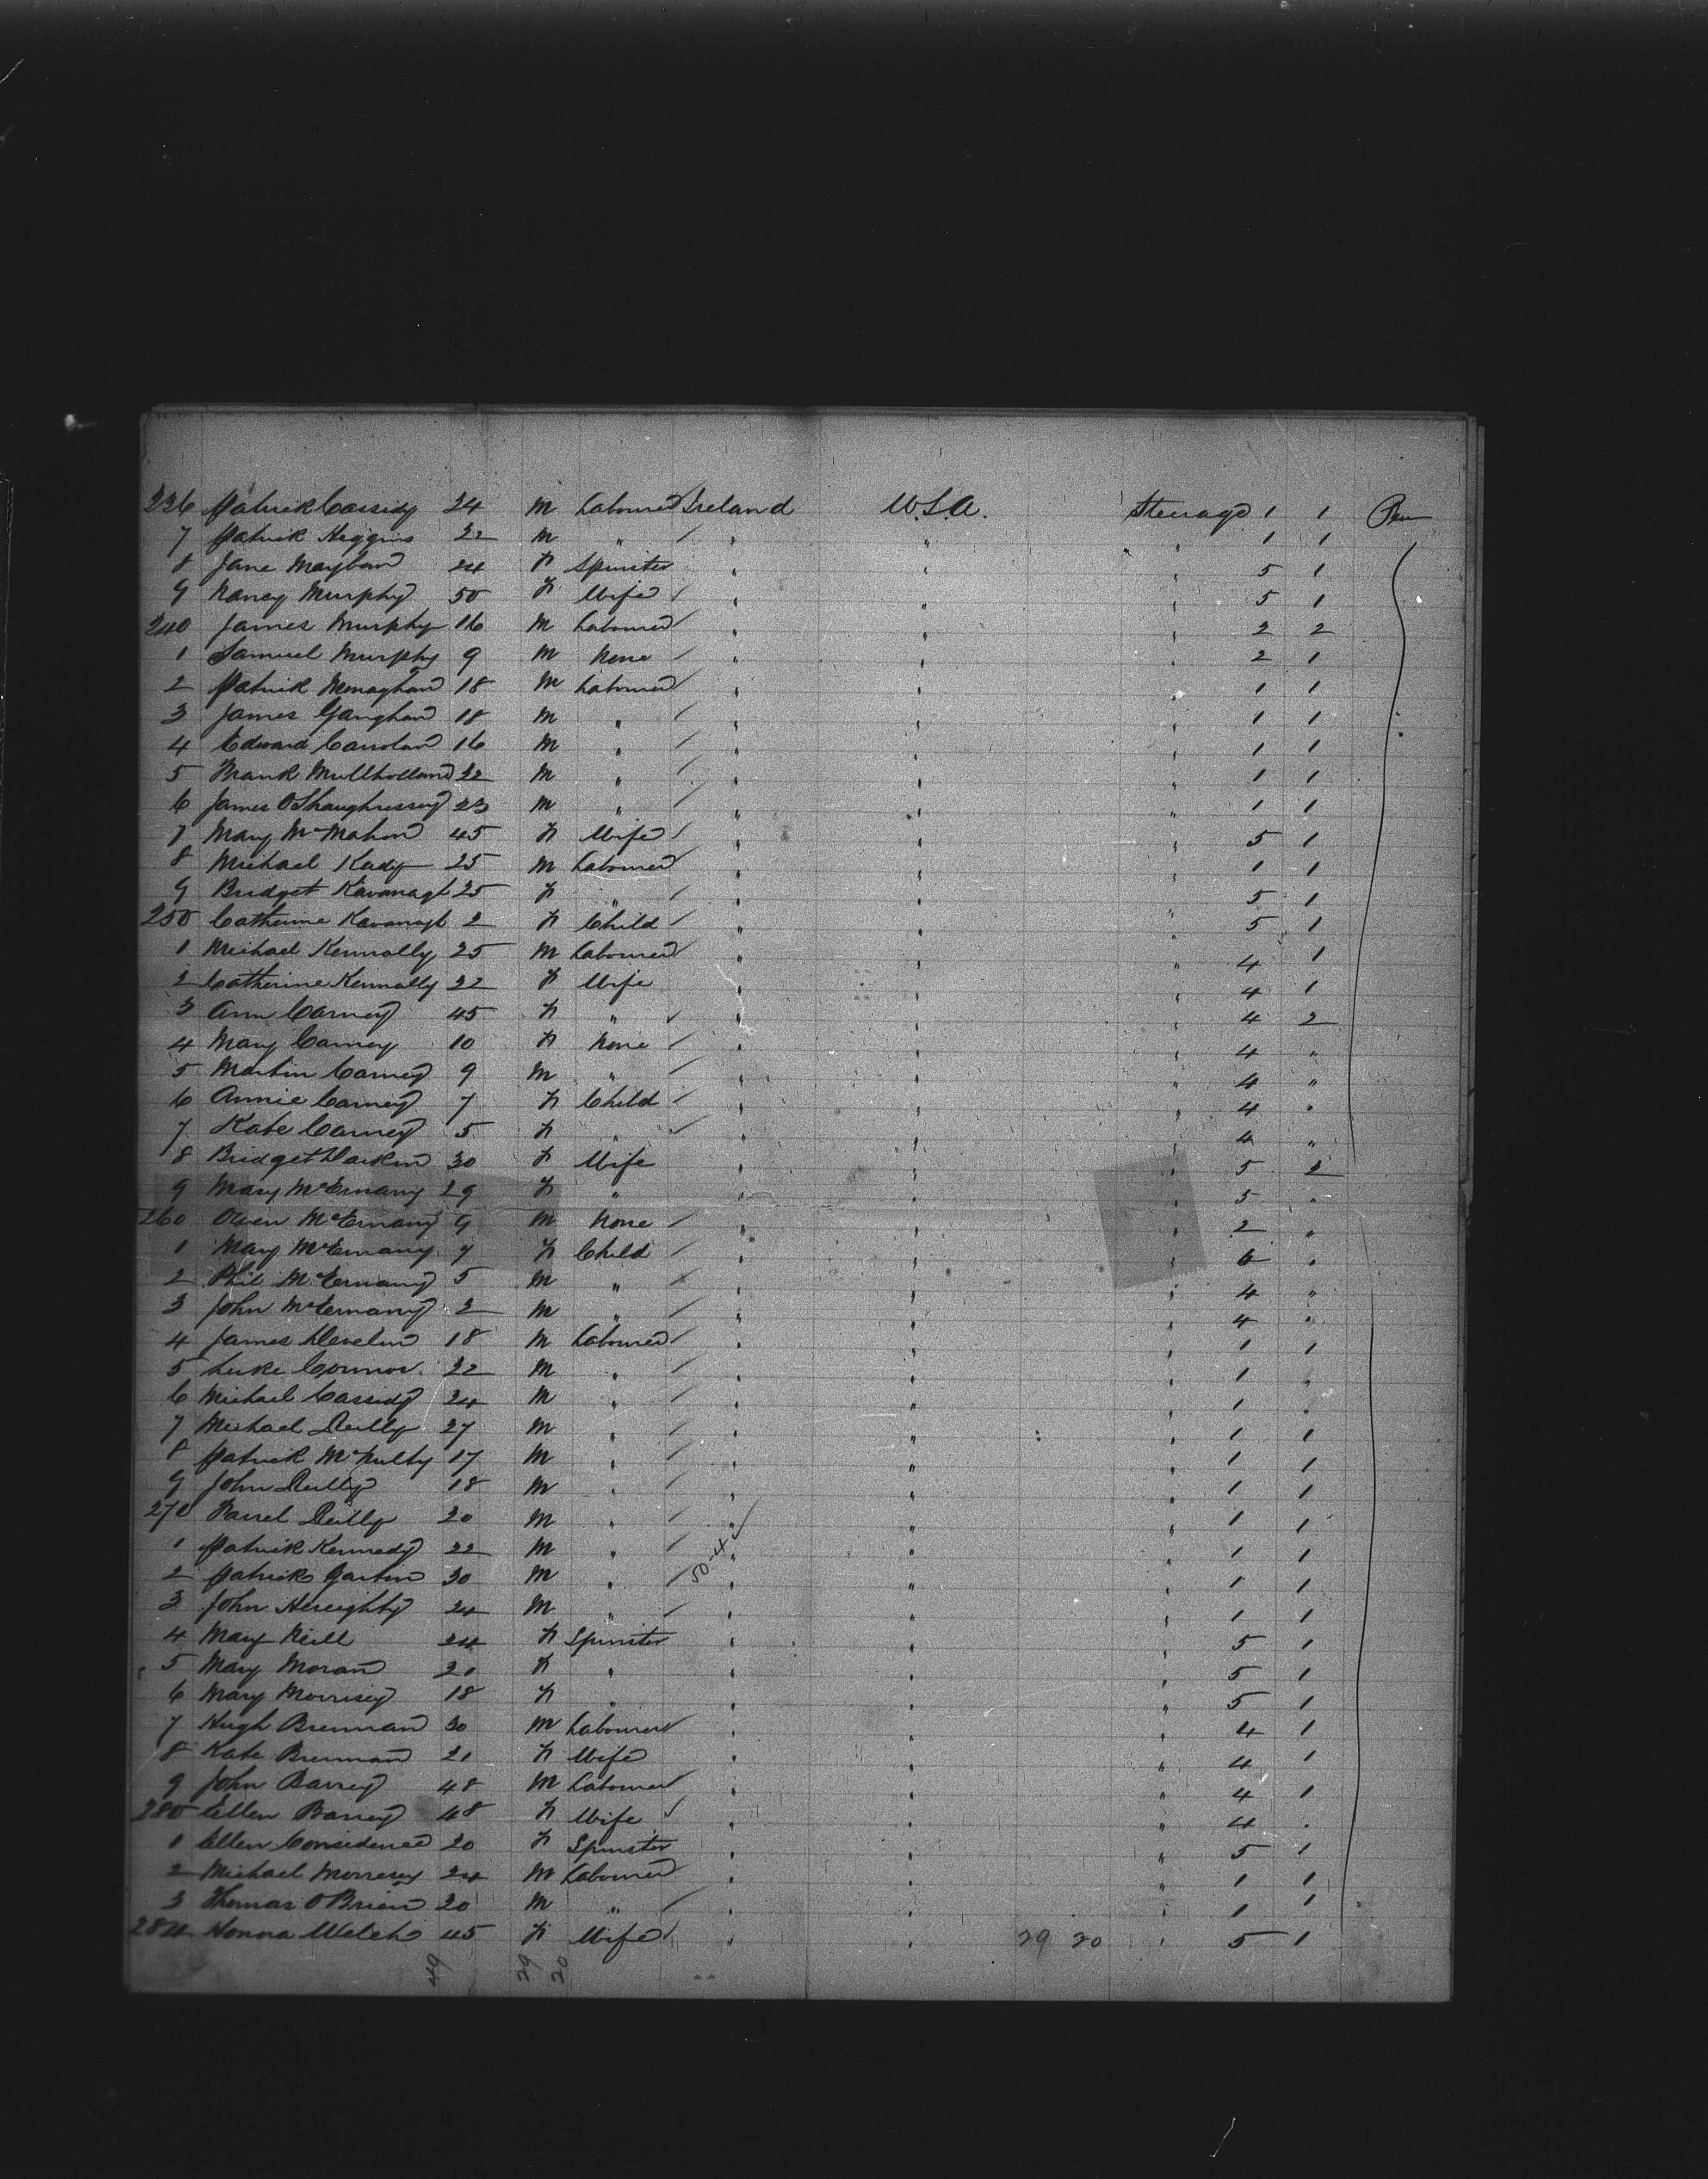 236 Patrick Cassidy 24 M Labourer Ireland U.S.A. Steerage 1 1
7 Patrick Higgins 22 M " " " " 1 1
8 Jane 24 F Spinster " " " 5 1
9 Nancy Murphy 50 F Wife " " " 5 1
240 James Murphy 16 M Labourer " " " 2 2
1 Samuel Murphy 9 M None " " " 2 1
2 Patrick Monaghan 18 M Labourer " " " 1 1
3 James Gaughan 18 M " " " " 1 1
4 Edward Carrolan 16 M " " " " 1 1
5 Frank Mullholland 22 M " " " " 1 1
6 James O'Shaughnessy 23 M " " " " 1 1
7 Mary McMahon 45 F Wife " " " 5 1
8 Michael Kady 25 M Labourer " " " 1 1
9 Bridget Kavanagh 25 F " " " " 5 1
250 Catherine Kavanagh 2 F Child " " " 5 1
1 Michael Kennally 25 M Labourer " " " 4 1
2 Catherine Kennally 22 F Wife " " " 4 1
3 Ann Carney 45 F " " " " 4 2
4 Mary Carney 10 F None " " " 4 "
5 Martin Carney 9 M " " " " 4 "
6 Annie Carney 7 F Child " " " 4 "
7 Kate Carney 5 F " " " " 4 "
8 Bridget Darkin 30 F Wife " " " 5 2
9 Mary McErnany 29 F " " " " 5 "
260 Owen McErnany 9 M None " " " 2 "
1 Mary McErnany 7 F Child " " " 6 "
2 Phil McErnany 5 M " " " " 4 "
3 John McErnany 2 M " " " " 4 "
4 James Develin 18 M Labourer " " " 1 1
5 Luke Connor 22 M " " " " 1 "
6 Michael Cassidy 24 M " " " " 1 "
7 Michael Reilly 27 M " " " " 1 1
8 Patrick McNulty 17 M " " " " 1 1
9 John Reilly 18 M " " " " 1 1
270 Farrel Reilly 20 M " " " " 1 1
1 Patrick Kennedy 22 M " " " " 1 1
2 Patrick 30 M " 50-4 " " " 1 1
3 John Hereighty 24 M " " " " 1 1
4 Mary Neill 24 F Spinster " " " 5 1
5 Mary Moran 21 F " " " " 5 1
6 Mary Morrisey 18 F " " " " 5 1
7 Hugh Brennan 30 M Labourer " " " 4 1
8 Kate Brennan 21 F Wife " " " 4 1
9 John Barrey 48 M Labourer " " " 4 1
280 Ellen Barrey 48 F Wife " " " 4 "
1 Ellen Considence 20 F Spinster " " " 5 1
2 Michael Morresey 24 M Labourer " " " 1 1
3 Thomas O'Brien 20 M " " " " 1 1
284 Honna Welch 45 F Wife " " 29 20 " 5 1
49 29 20